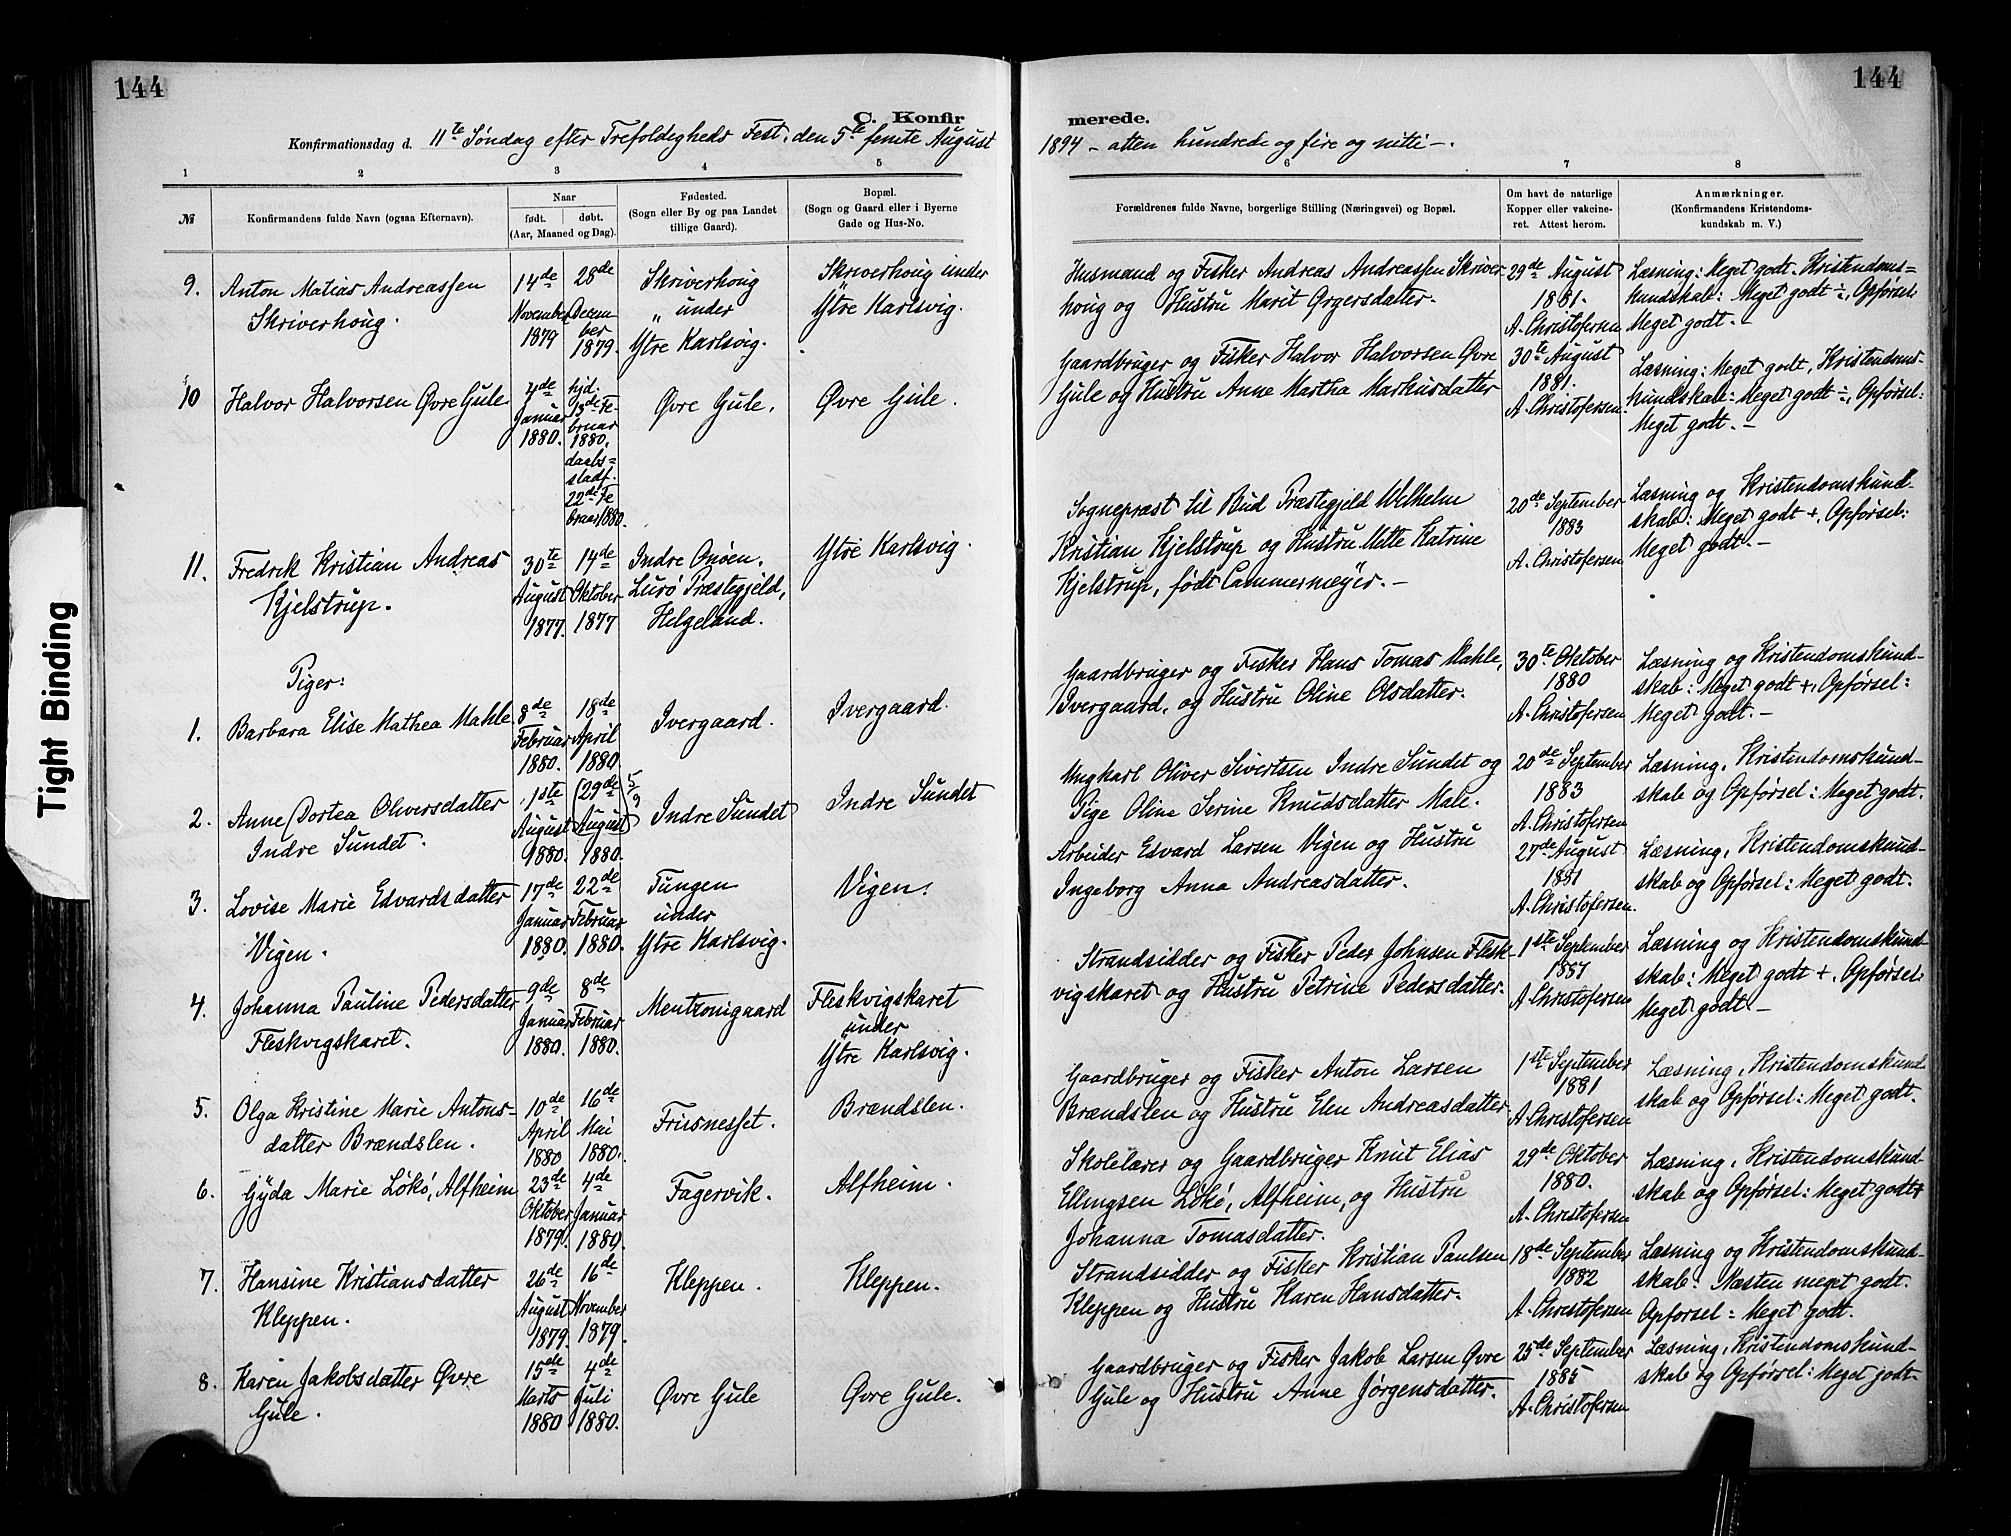 144
144
C. Konfir
merede.
Konfirmationsdag d. 11te Søndag efter Trefoldigheds Fest, den 5te femte August
1894 – atten hundrede og fire og nitti –.
1 2 3 4 5
6 7 8
№
Konfirmandens fulde Navn (ogsaa Efternavn).
Naar
født. døbt.
(Aar, Maaned og Dag).
Fødested.
(Sogn eller By og paa Landet
tillige Gaard).
Bopæl.
(Sogn og Gaard eller i Byerne
Gade og Hus-No.
Forældrenes fulde Navne, borgerlige Stilling (Næringsvei) og Bopæl.
Om havt de naturlige
Kopper eller vakcine-
ret. Attest herom.
Anmærkninger.
(Konfirmandens Kristendoms-
kundskab m. V.)
9.
Anton Matias Andreassen
Skriverhoug.
14de
November
1879
28de
Decem-
ber
1879.
Skriverhoug
„ under
Ytre Karlsvig.
Skriverhoug under
Ytre Karlsvig.
Husmand og Fisker Andreas Andreassen Skriver
houg og Hustru Marit Ørgersdatter.
29de August
1881.
A. Christofersen
Læsning: Meget godt. Kristendoms=
kundskab: Meget godt ÷, Opførsel:
Meget godt. –
10
Halvor Halvorsen Øvre Gule
4de
Januar
1880.
hjd.
13de Fe-
bruar
1880.
daabs=
stadf.
22de Fe
bruar 1880.
Øvre Gule.
Øvre Gule.
Gaardbruger og Fisker Halvor Halvorsen Øvre
Gule og Hustru Anne Martha Markusdatter
30te August
1881.
A. Christofersen.
Læsning: Meget godt, Kristendoms
kundskab: Meget godt ÷, Opførsel:
Meget godt. –
11.
Fredrik Kristian Andreas
Kjelstrup.
30te
August
1877.
14de
Oktober
1877
Indre Onøen.
Lurø Præstegjeld,
Helgeland.
Ytre Karlsvig.
Sognepræst til Bud Præstegjeld Wilhelm
Kristian Kjelstrup og Hustru Mette Katrine
Kjelstrup, født Cammermeyer. –
20de September
1883
A. Christofersen
Læsning og Kristendomskund-
skab: Meget godt +, Opførsel:
Meget godt. –
Piger:
1.
Barbara Elise Mathea Mahle
8de
Februar
1880.
18de
April
1880.
Ivergaard.
Ivergaard.
Gaardbruger og Fisker Hans Tomas Mahle,
Ivergaard, og Hustru Oline Olsdatter.
30te Oktober
1880
A. Christofersen
Læsning og Kristendomskund-
skab: Meget godt +, Opførsel:
Meget godt. –
2.
Anne Dortea Oliversdatter
Indre Sundet.
1ste
August
1880.
(29de
August)
1880.
5/9
Indre Sundet
Indre Sundet
Ungkarl Oliver Sivertsen Indre Sundet og
Pige Oline Serine Knudsdatter Male.
20de September
1883
A. Christofersen
Læsning, Kristendomskund-
skab og Opførsel: Meget godt.
3.
Lovise Marie Edvardsdatter
Vigen.
17de
Januar
1880.
22de
Februar
1880.
Tungen
under
Ytre Karlsvig.
Vigen.
Arbeider Edvard Larsen Vigen og Hustru
Ingeborg Anna Andreasdatter.
27de August
1881
A. Christofersen.
Læsning, Kristendomskund-
skab og Opførsel: Meget godt.
4.
Johanna Pauline Pedersdatter
Fleskvigskaret.
9de
Januar
1880.
8de
Februar
1880.
Mentzonigaard
Fleskvigskaret
under
Ytre Karlsvig.
Strandsidder og Fisker Peder Johnsen Flesk-
vigskaret og Hustru Petrine Pedersdatter.
1ste September
1881
A. Christofersen
Læsning og Kristendomskund-
skab: Meget godt +, Opførsel:
Meget godt. –
5.
Olga Kristine Marie Antons-
datter Brændslen.
10de
April
1880
16de
Mai
1880.
Friisnesset.
Brændslen.
Gaardbruger og Fisker Anton Larsen
Brændslen og Hustru Elen Andreasdatter
1ste September
1881
A. Christofersen
Læsning, Kristendomskund
skab og Opførsel: Meget godt.
6.
Gyda Marie Løkø, Alfheim
23de
Oktober
1879.
4de
Januar
1880.
Fagervik.
Alfheim.
Skolelærer og Gaardbruger Knut Elias
Ellingsen Løkø, Alfheim, og Hustru
Johanna Tomasdatter.
29de Oktober
1880.
A. Christofersen
Læsning, Kristendomskund-
skab og Opførsel: Meget godt +
7.
Hansine Kristiansdatter
Kleppen.
26de
August
1879.
16de
November
1879.
Kleppen.
Kleppen.
Strandsidder og Fisker Kristian Paulsen
Kleppen og Hustru Karen Hansdatter.
18de September
1882
A. Christofersen
Læsning og Kristendomskund-
skab: Næsten meget godt.
Opførsel: Meget godt.
8.
Karen Jakobsdatter Øvre
Gule.
15de
Marts
1880
4de
Juli
1880.
Øvre Gule
Øvre Gule.
Gaardbruger og Fisker Jakob Larsen Øvre
Gule og Hustru Anne Jørgensdatter.
25de September
1885
A. Christofersen
Læsning, Kristendomskund-
skab og Opførsel: Meget godt.
Tight Binding